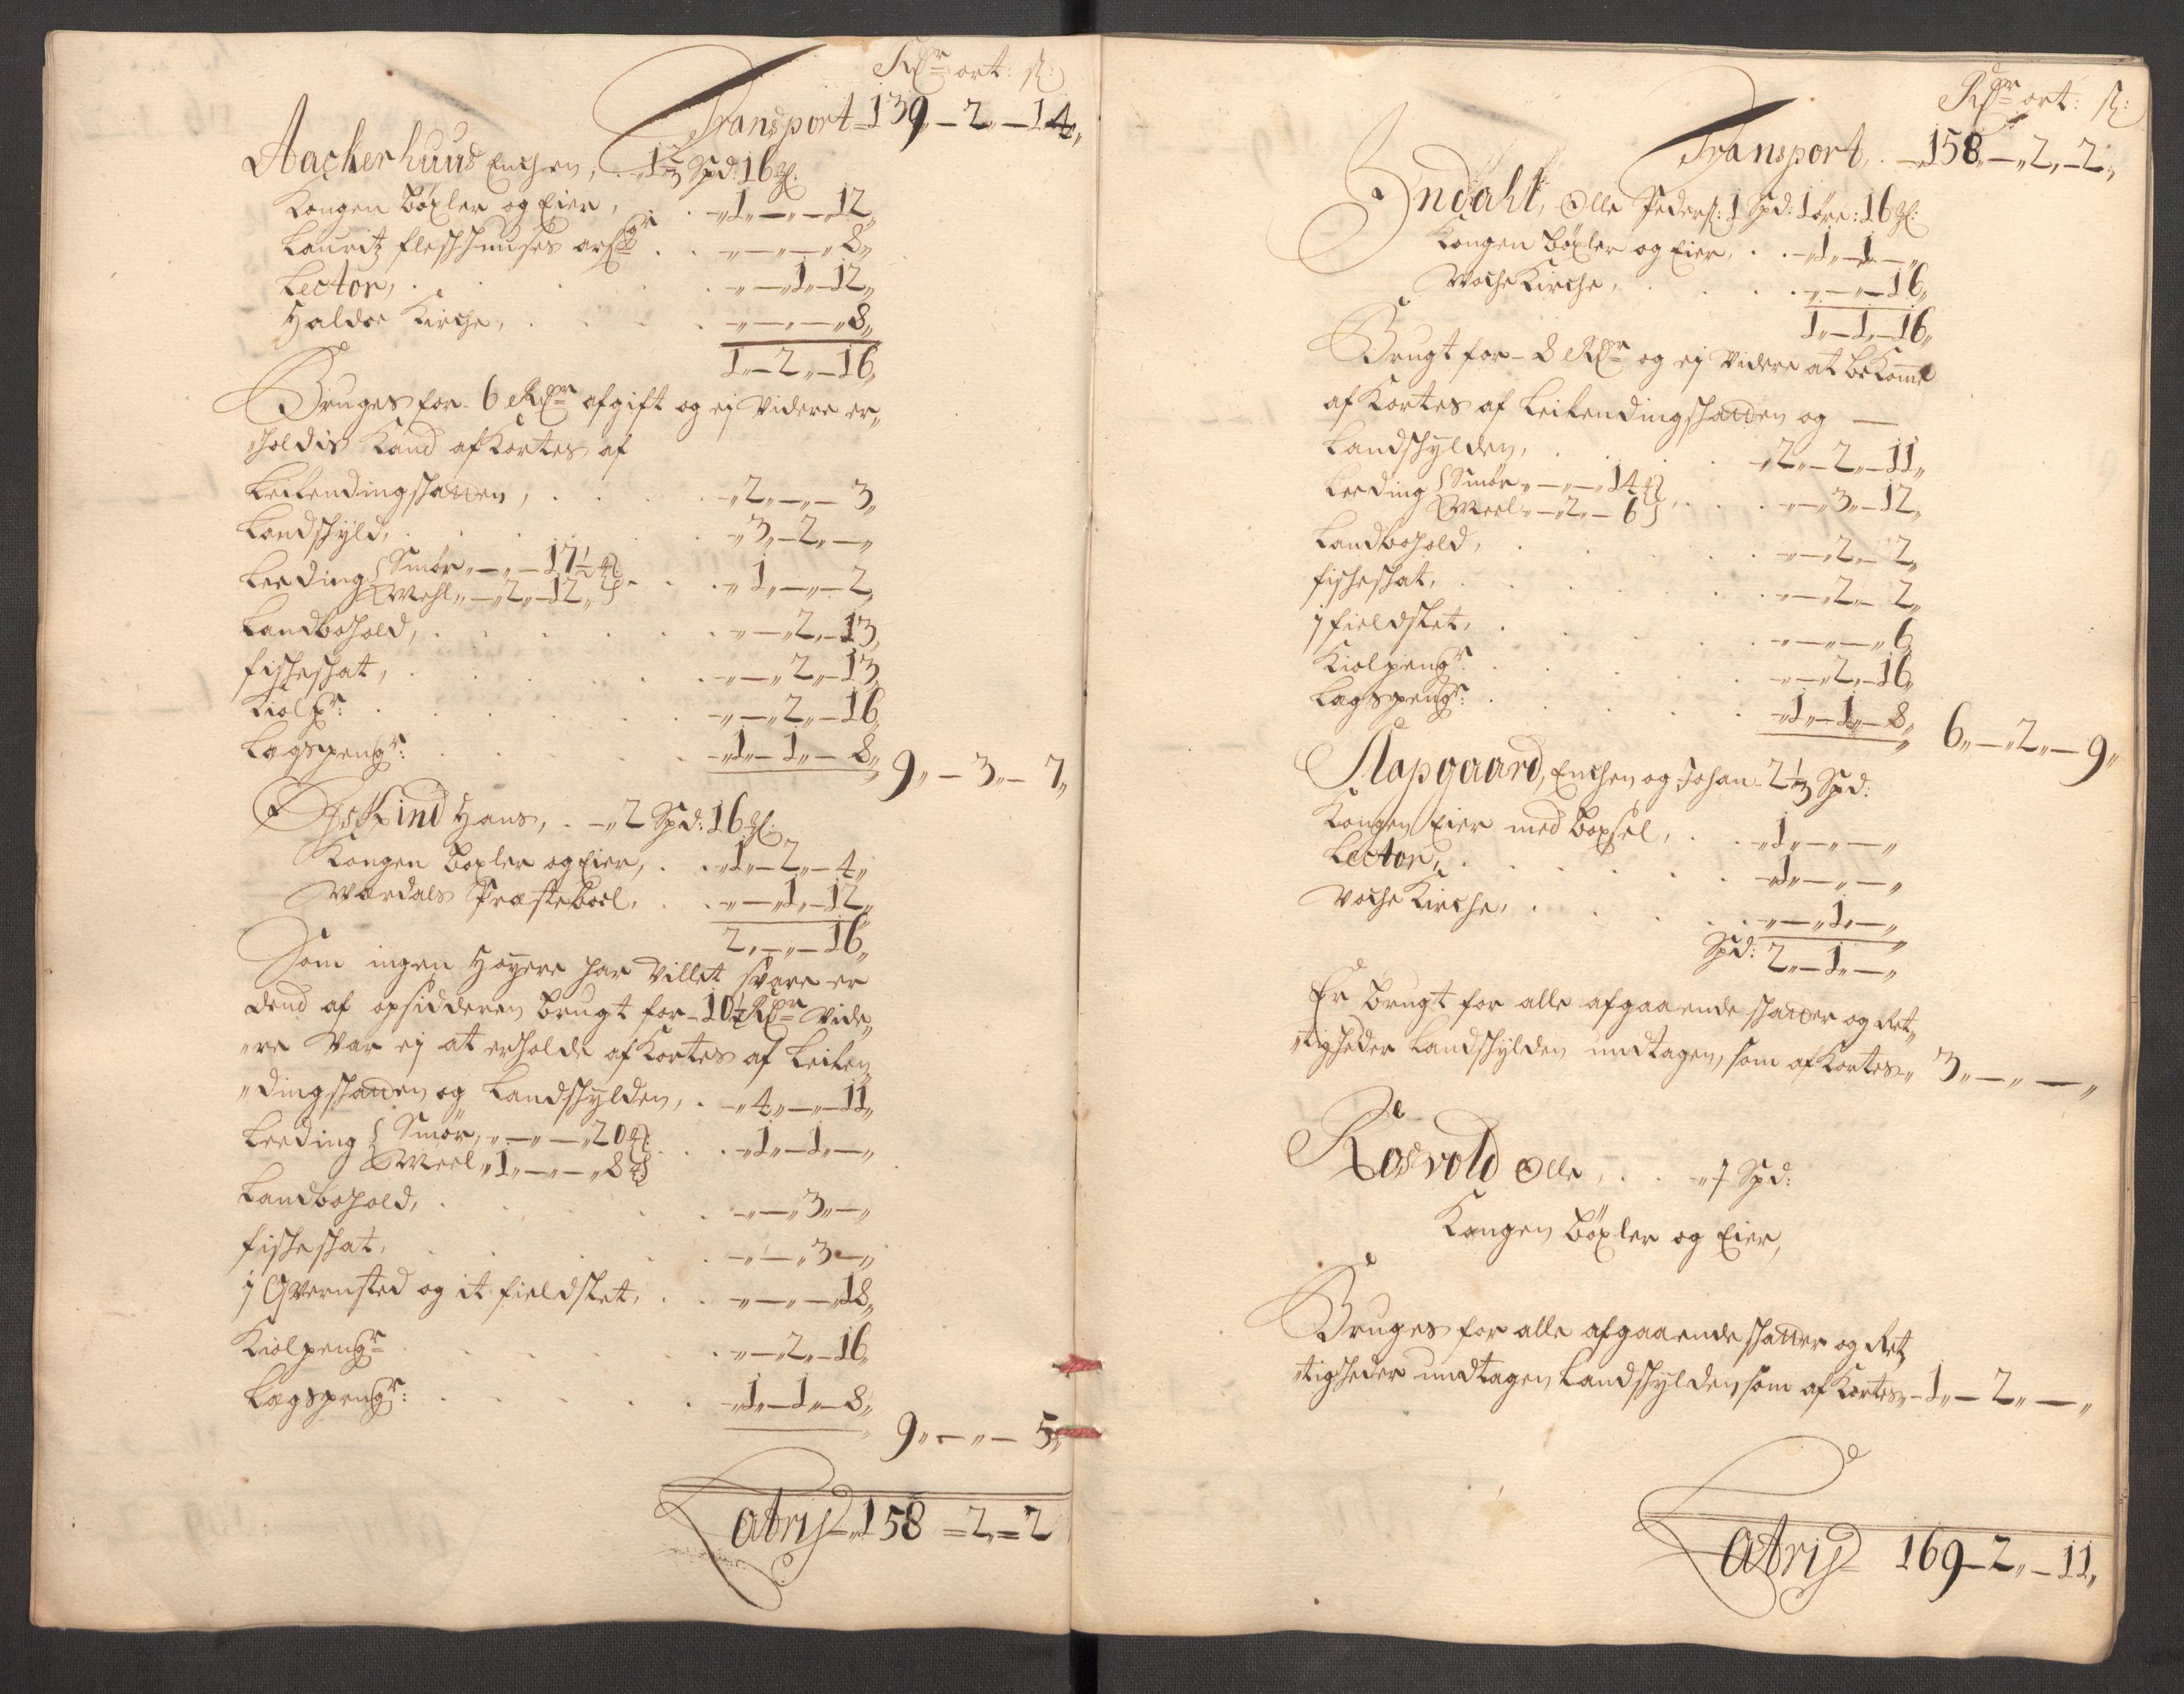 Rdr ort: s:
Transport = 139„ – 2„ – 14„
Aackerhuus Enchen, . „1 2/3 Spd: 16 gl:
Kongen böxler og Eier, . . „1„ – „ – 12„
Lauritz Fleschhuuses arfr . . „ – „ – „ 8„
Lector, . . . . „ – „1„ – 12„
Haldoe Kirche, . . . . „ – „ – „ 8„
1„ – 2„ – 16„
Bruges for 6 Rdr afgift og ej Videre er„
„holdis Kand afKortes af
Leilendingschatten, . . . . „2„ – „ – 3„
Landschyld, . . . . „3„ – 2„ – „
Leeding { Smör „ – „ – 17½ ℔
Mehl „ – 2„ – 12„ } . . „1„ – „ – 2„
Landbohold, . . . . „ – „2„ – 13„
fischeschat, . . . . „ – „2„ – 13„
Kiolpr: . . . . „ – „2„ – 16„
Lagspengr: . . . . „1„ – 1„ – 8„ 9„ – 3„ – 7„
Hans, . – „2 Spd: 16 gl:
Kongen boxler og Eier, . . „1„ – 2„ – 4„
Wardals Præsteboel, . . „ – „1„ – 12„
2„ – „ – 16„
Som ingen Höyere har Villet svare er
dend af opsidderen brugt for – 10½ Rdr Vide„
„re Var ej at erholde afKortes af Leilen„
„dingschatten og Landschylden, . „4„ – „ – 11„
Leeding { Smör, „ – „ – 20 ℔
Meel „1„ – „ – „8 ℔ } . . „1„ – 1„ – „
Landbohold, . . . . „ – „3„ – „
fischeschat, . . . . „ – „3„ – „
j Qvernsted og it fieldslet, . . „ – „ – „18„
Kiolpengr . . . . „ – „2„ – 16„
Lagspengr: . . . . „1„ – 1„ – 8„
9„ – „ – 5„
Latris „158 = 2„ = 2
Rdr ort: s:
Transport, . – 158„ – „2„ – 2„
Indahl, Olle Peders: 1 Spd: 1 öre: 16 gl:
Kongen böxler og Eier, . . „1„ – 1„ – „
Woche Kirche, . . . . „ – „ – 16„
1„ – 1„ – 16„
Brugt for – 8 Rdr og ej Videre at bekomme
afKortes af Leilendingschatten og –
Landschylden, . . . „2„ – 2„ – 11„
Leeding { Smör „ – „ – „14 ℔
Meel „ – „2„ – 6 } . . . „ – „3„ – 12„
Landbohold, . . . . „ – „2„ – 2„
fischeschat, . . . . „ – „2„ – 2„
j fieldslet, . . . . „ – „ – „ 6„
Kiolpengr . . . . „ – „2„ – 16„
Lagspengr: . . . . „1„ – 1„ – 8„ 6„ – „2„ – 9„
Slapgaard, Enchen og Johan – 2 1/3 Spd:
Kongen Eier med boxsel, . . „1„ – „ – „
Lector, . . . . „1„ – „ – „
Woche Kirche, . . . . „ – „1„ – „
Spd: 2„ – 1„ – „
Er brugt for alle afgaaende schatter og Ret„
„tigheder Landschylden undtagen, som afKortes „ 3„ – „ – „
Rosvold Olle, . . – „1 Spd:
Kongen böxler og Eier,
Bruges for alle afgaaende schatter og Ret„
„tigheder undtagen Landschylden som afKortes, – 1„ – 2„ – „
Latris 169 – 2„ – 11„